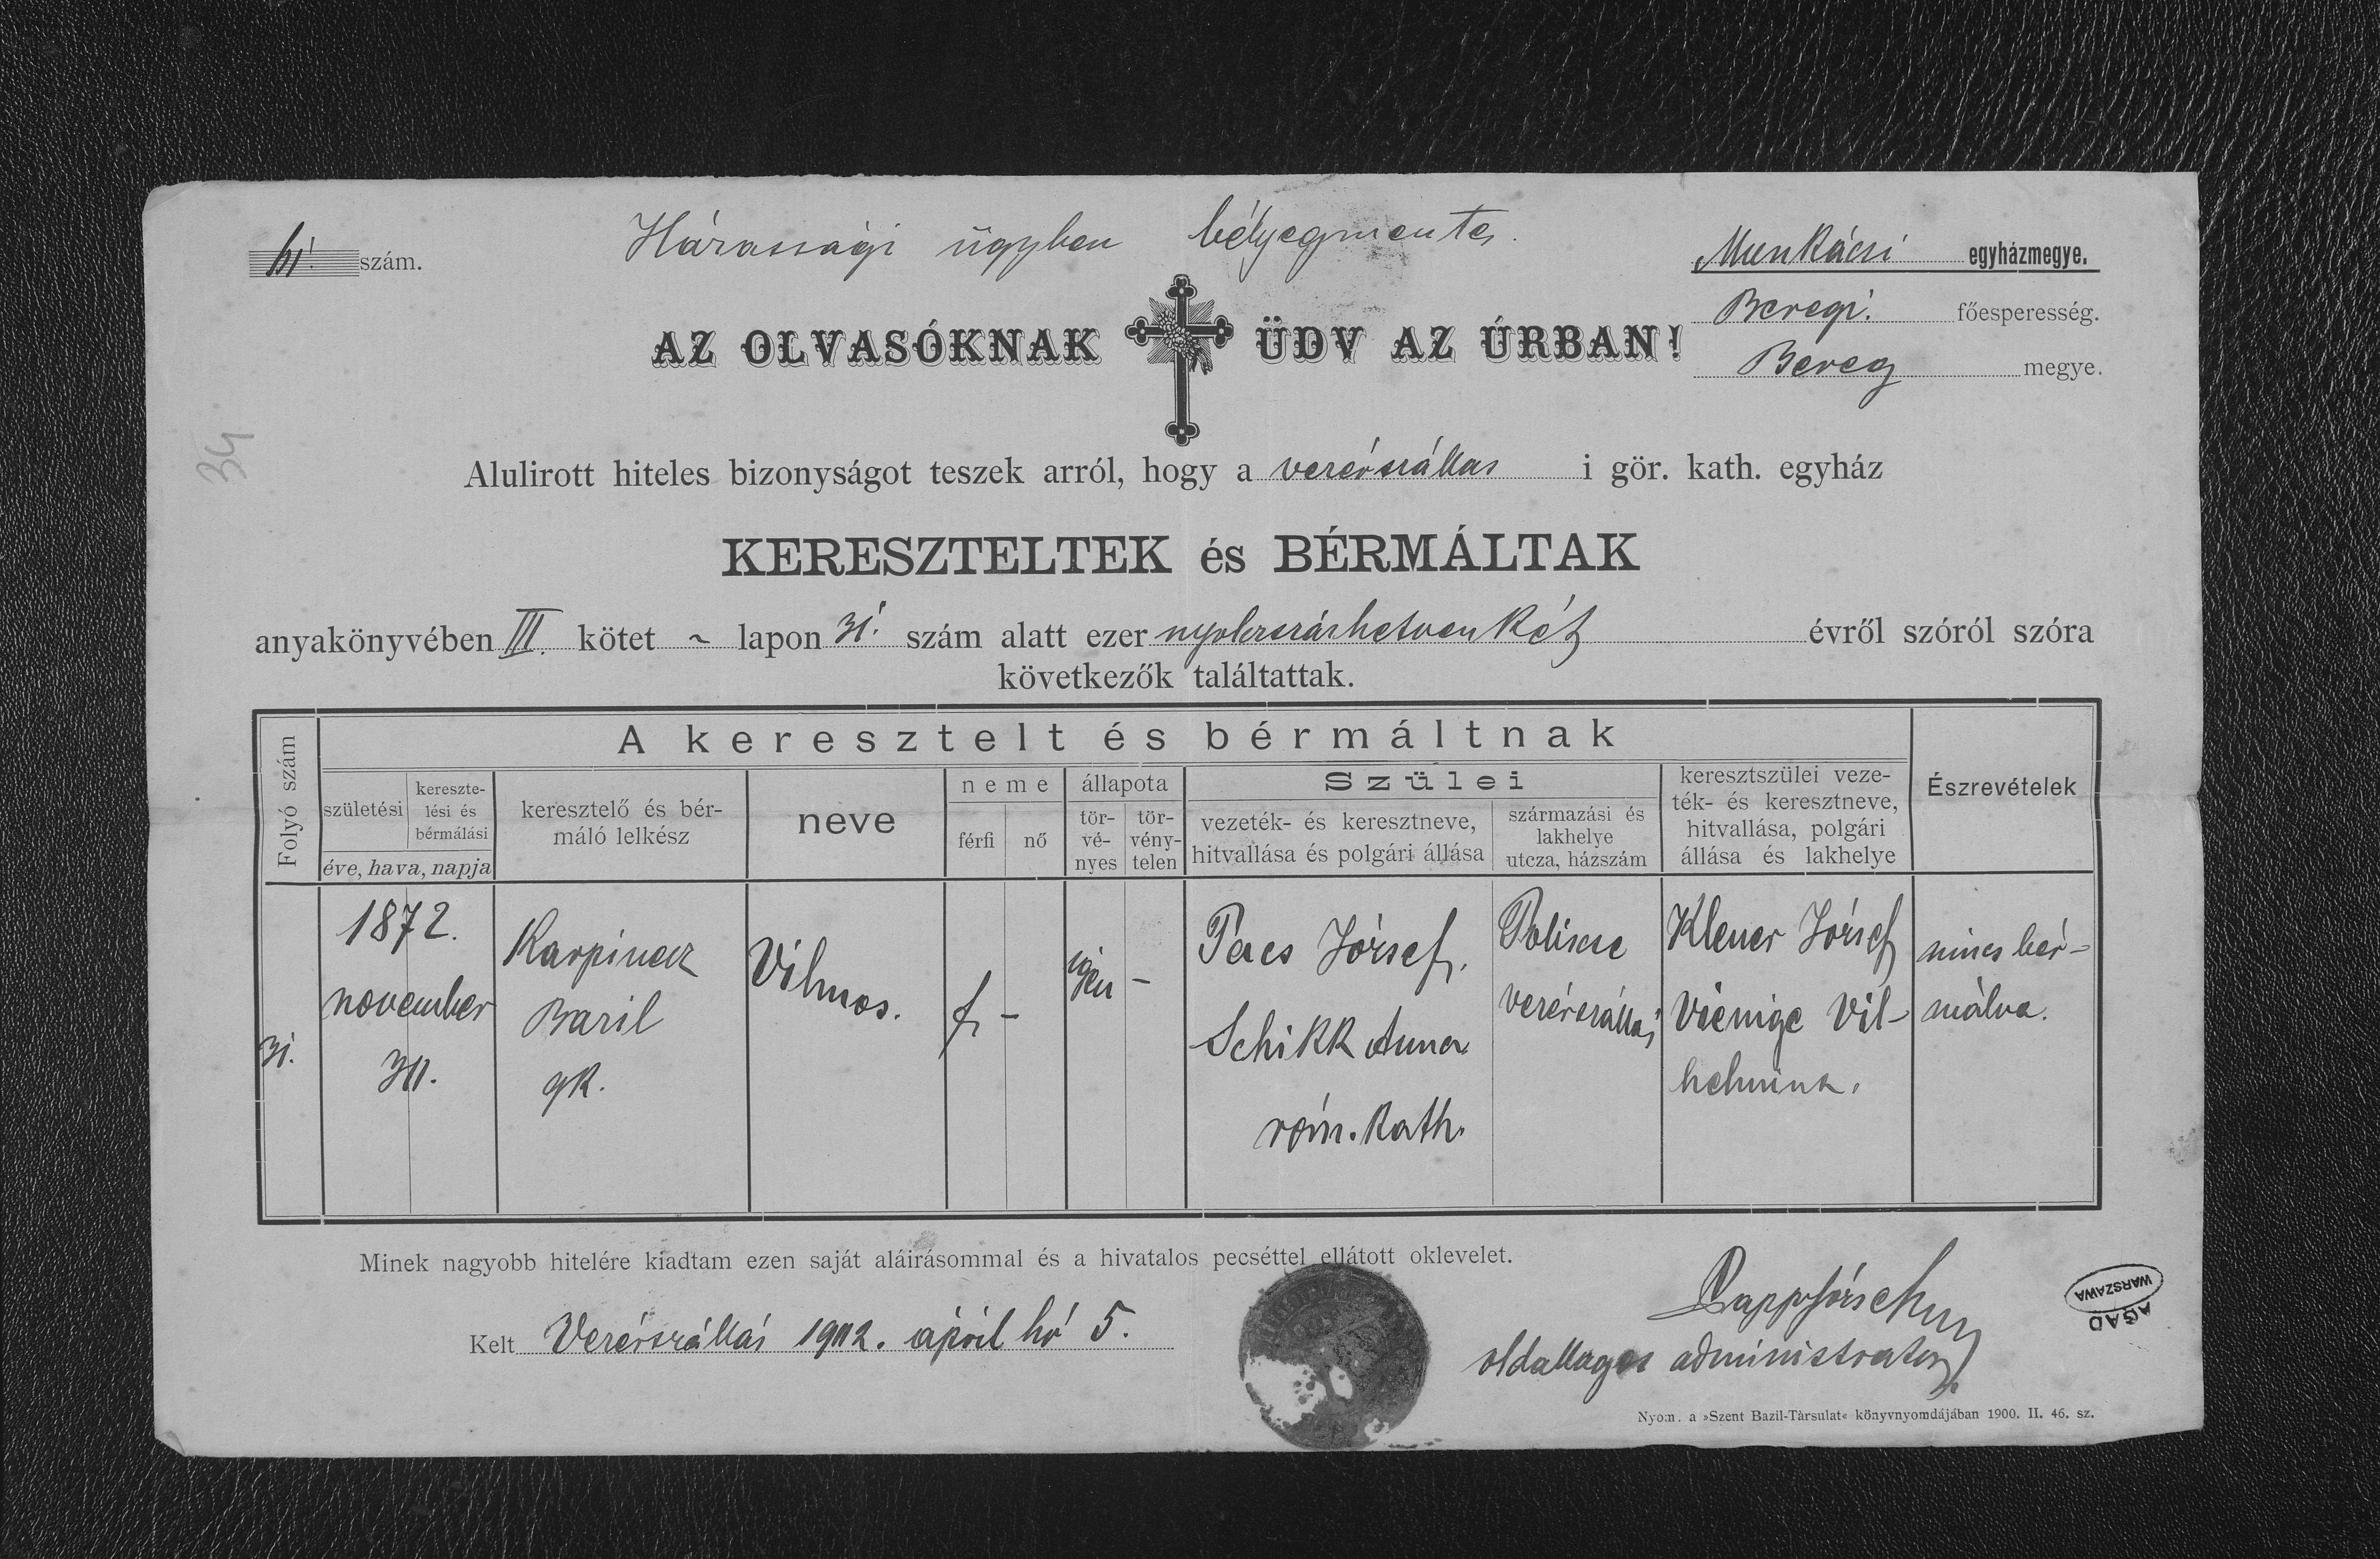 61. szám.
Házassági ügyben bélyegmentes.
Munkácsi egyházmegye.
Beregi. főesperesség.
Bereg megye.
AZ OLVASÓKNAK ÜDV AZ ÚRBAN!
34
Alulirott hiteles bizonyságot teszek arról, hogy a verécszállás i gör. kath. egyház
KERESZTELTEK és BÉRMÁLTAK
anyakönyvében III. kötet ~ lapon 31. szám alatt ezer nyolczszázhetvenkét évről szóról szóra
következők találtattak.
Folyó szám
A keresztelt és bérmáltnak
születési
kereszte-
lési és
bérmálási
éve, hava, napja
keresztelő és bér-
máló lelkész
neve
neme
férfi
nő
állapota
tör-
vé-
nyes
tör-
vény-
telen
Szülei
vezeték- és keresztneve,
hitvallása és polgári állása
származási és
lakhelye
utcza, házszám
keresztszülei veze-
ték- és keresztneve,
hitvallása, polgári
állása és lakhelye
Észrevételek
31.
1872.
november
30.
Karpinecz
Bazil
gk.
Vilmos.
f. -
igen -
József.
Schikk Anna
róm. kath.
Poliscse
verécszállás
József
Vil-
helmina.
nincs bér-
málva.
Minek nagyobb hitelére kiadtam ezen saját aláirásommal és a hivatalos pecséttel ellátott oklevelet.
Kelt Verécszállás 1902. ápril hó 5.
Papp József
oldallagos administrator
AGAD
WARSZAWA
Nyom. a »Szent Bazil-Társulat« könyvnyomdájában 1900. II. 46. sz.